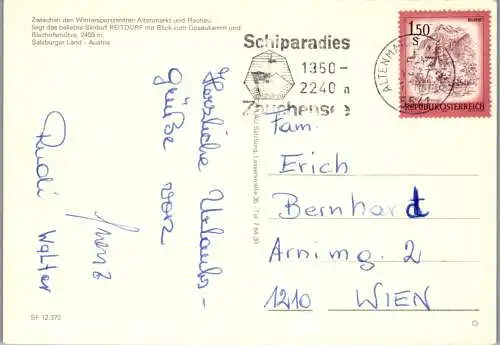 Zwischen den Wintersportzentren Altenmarkt und Radstadt
liegt das beliebte Skidorf REITDORF mit Blick zum Gosaukamm und
Bischofsmütze, 2459 m.
Salzburger Land - Austria
Schiparadies
1350-
2240 m
Zauchensee
ALTENMA
1.50
S
REPUBLIK ÖSTERREICH
Herzliche Urlaubs-
grüße von
Franz
Rudi Walter
Fam.
Erich
Bernhardt
Arnimg. 2
1210 WIEN
SF 12.370